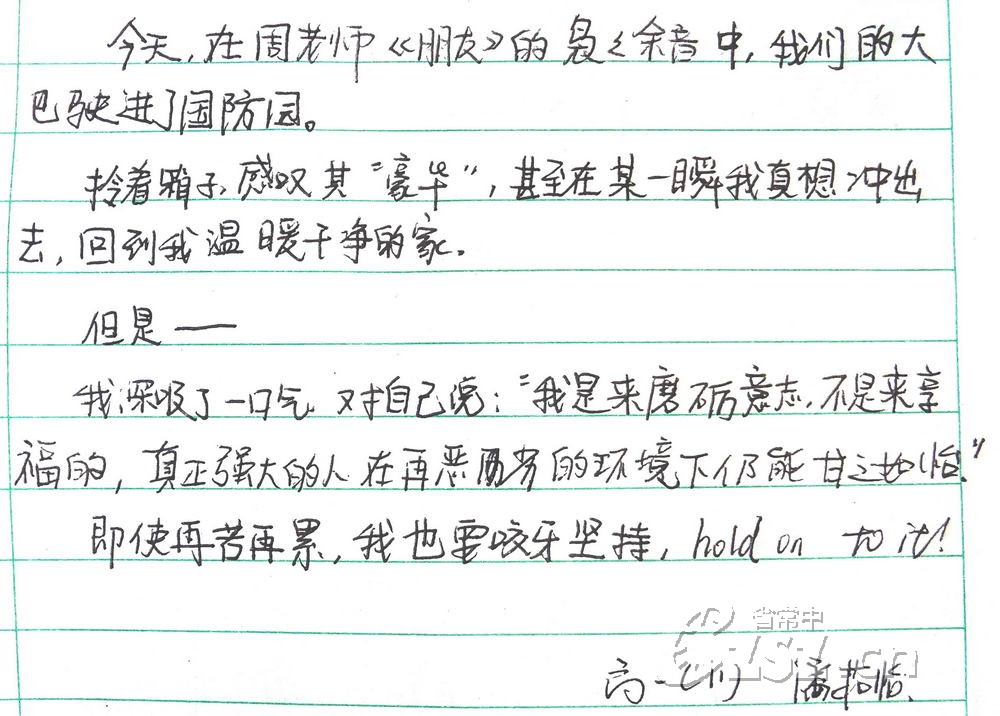 今天,在周老师《朋友》的袅々余音中,我们的大
巴驶进了国防园。
拎着箱子,感叹其“豪华”,甚至在某一瞬我真想冲出
去,回到我温暖干净的家。
但是——
我深吸了一口气,对自己说:“我是来磨砺意志,不是来享
福的,真正强大的人在再恶劣的环境下仍能甘之如饴.”
即使再苦再累,我也要咬牙坚持,hold on to it!
省常中
高一(11) 潘